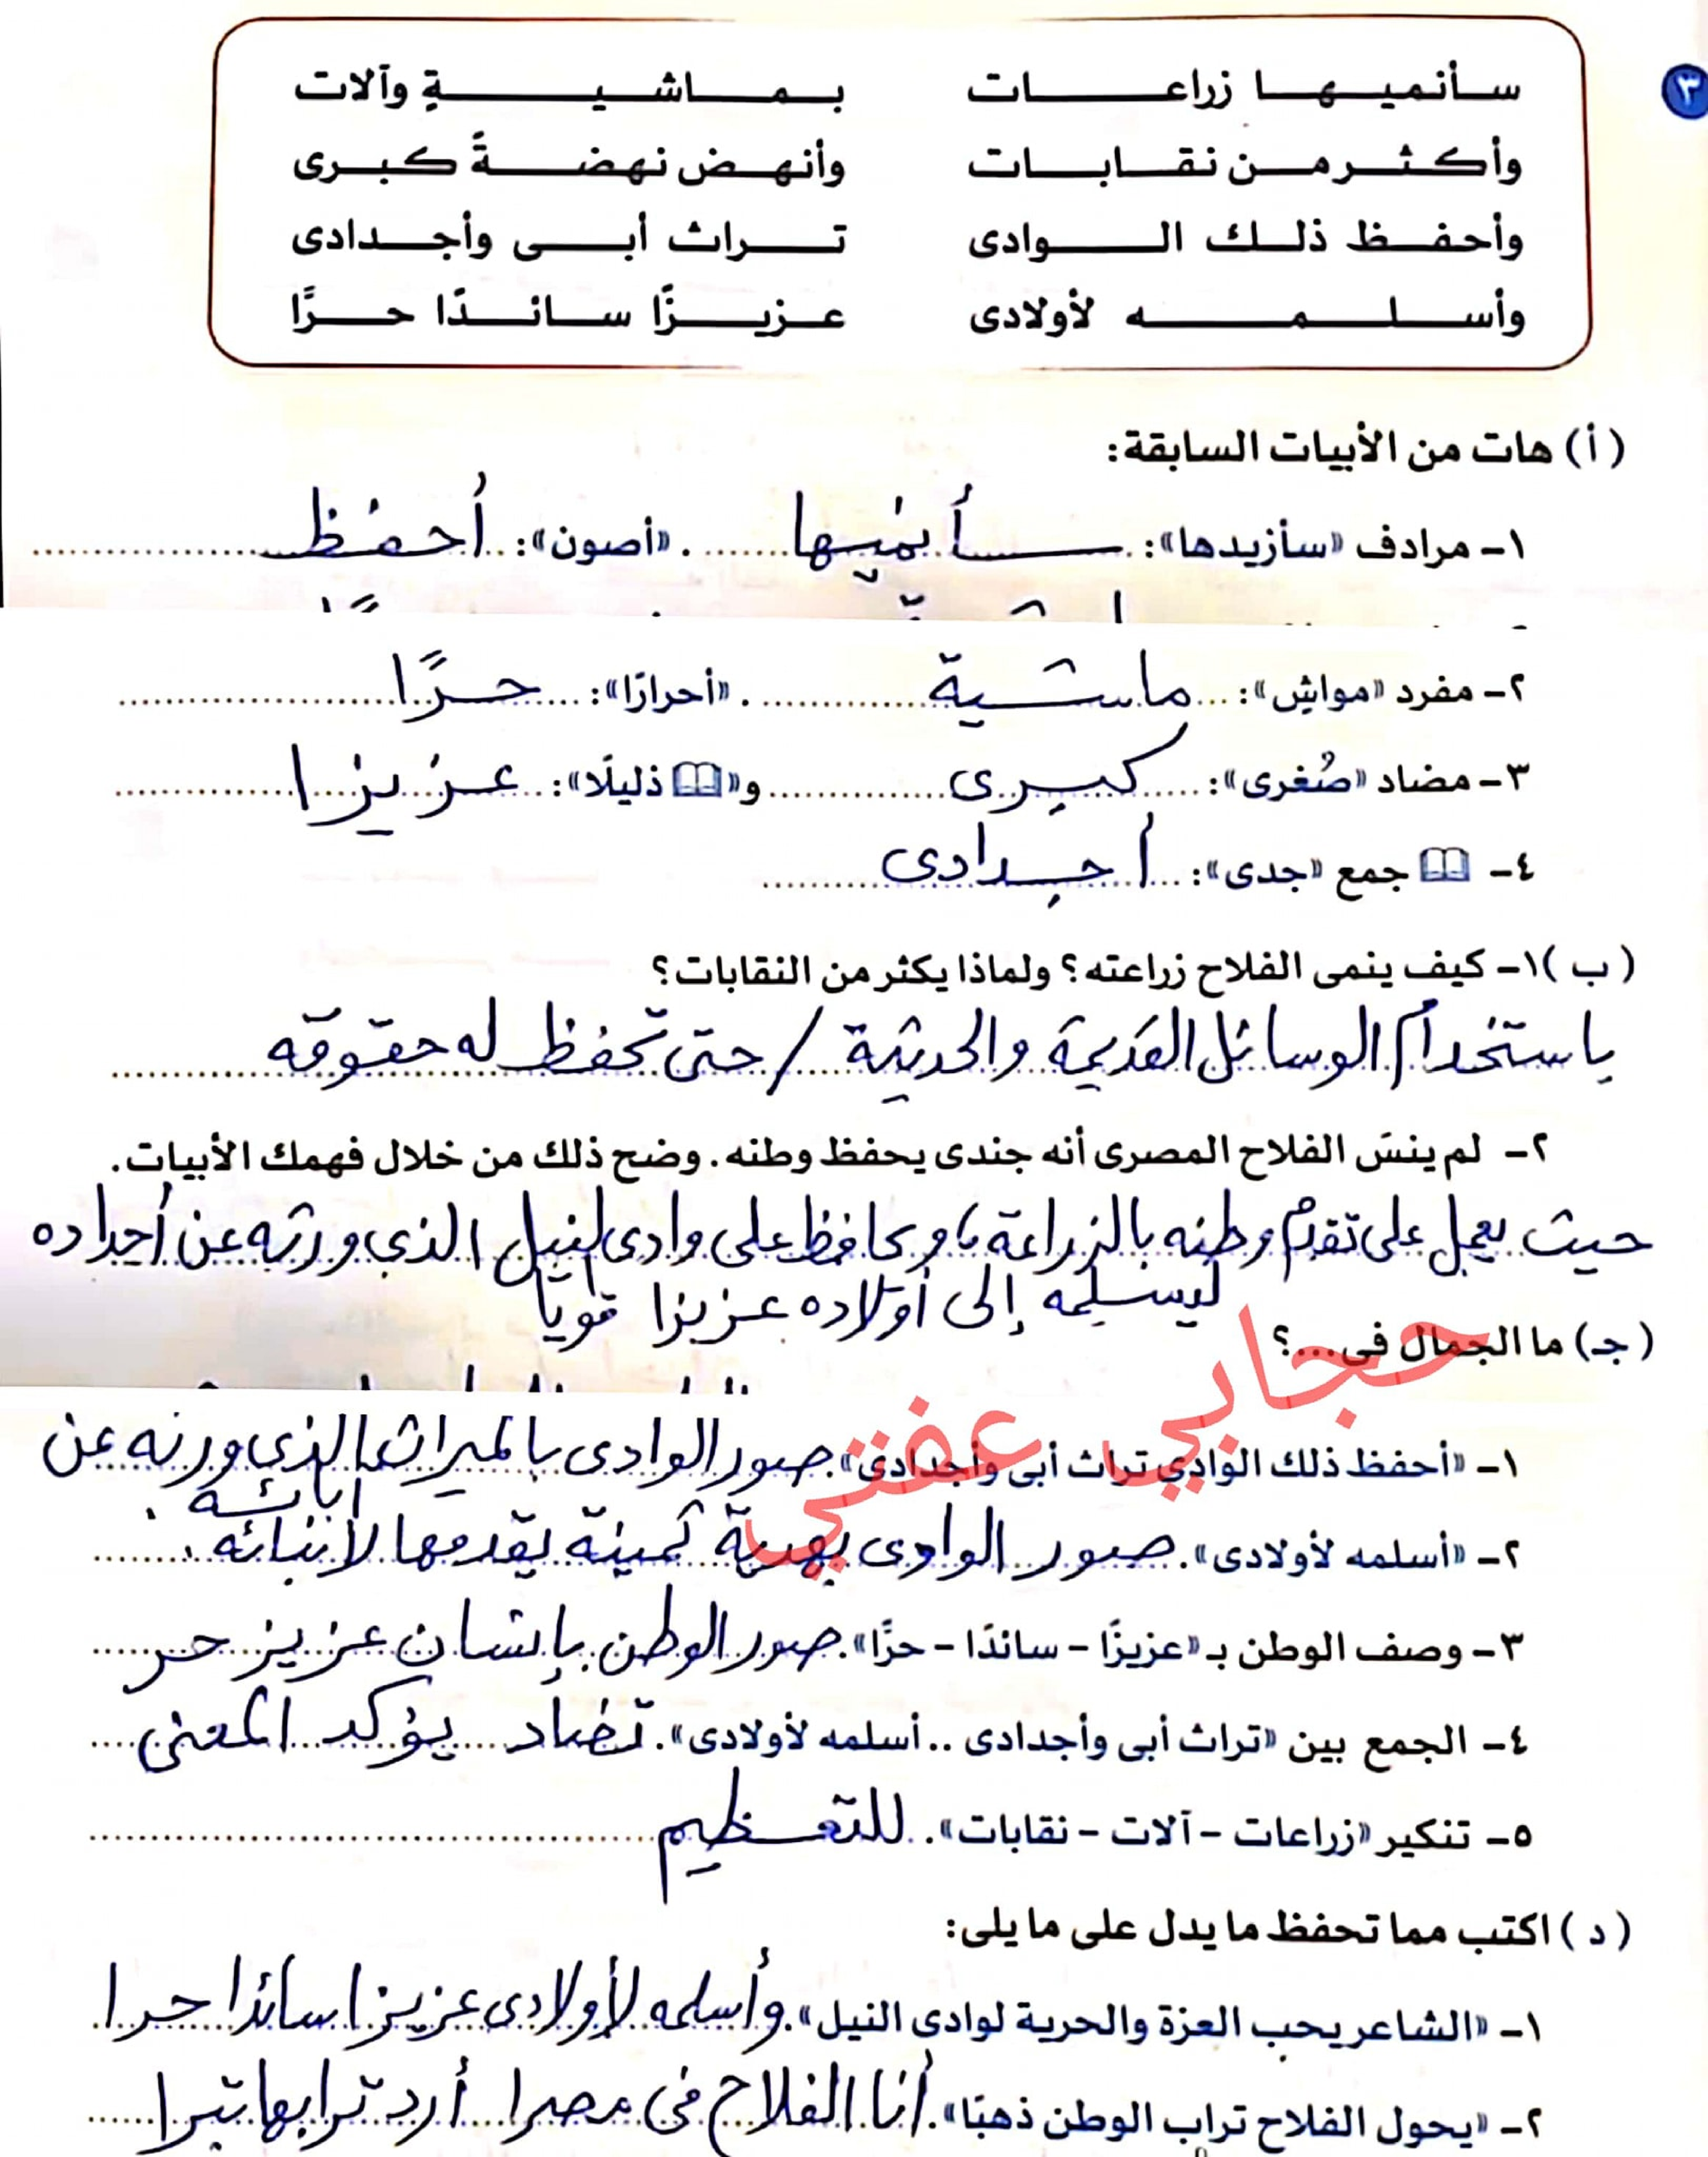 ٣
سأنميها زراعات بماشيةٍ وآلات
وأكثر من نقابات وأنهض نهضةً كبرى
وأحفظ ذلك الوادى تراث أبى وأجدادى
وأسلمه لأولادى عزيزًا سائدًا حرًّا
(أ) هات من الأبيات السابقة:
١- مرادف «سأزيدها»: سأنميها. «أصون»: أحفظ
٢- مفرد «مواشٍ»: ماشية. «أحرارًا»: حرًّا
٣- مضاد «صُغرى»: كبرى و«ذليلًا»: عزيزا
٤- جمع «جدى»: أجدادى
(ب) ١- كيف ينمى الفلاح زراعته؟ ولماذا يكثر من النقابات؟
باستخدام الوسائل القديمة والحديثة / حتى تحفظ له حقوقه
٢- لم ينسَ الفلاح المصرى أنه جندى يحفظ وطنه. وضح ذلك من خلال فهمك الأبيات.
حيث يعمل على تقدم وطنه بالزراعة، ويحافظ على وادى لنيل الذي ورثه عن أجداده
ليسلمه إلى أولاده عزيزا قويا
(جـ) ما الجمال فى...؟
١- «أحفظ ذلك الوادي تراث أبى وأجدادى». صور الوادى بالميراث الذي ورثه عن
آبائه.
٢- «أسلمه لأولادى». صور الوادى بهدية ثمينة يقدمها لأبنائه.
٣- وصف الوطن بـ «عزيزًا - سائدًا - حرًّا». صور الوطن بإنسان عزيز حر
٤- الجمع بين «تراث أبى وأجدادى .. أسلمه لأولادى». تضاد يؤكد المعنى
٥- تنكير «زراعات - آلات - نقابات». للتعظيم
(د) اكتب مما تحفظ ما يدل على ما يلى:
١- «الشاعر يحب العزة والحرية لوادى النيل». وأسلمه لأولادى عزيزا سائدا حرا
٢- «يحول الفلاح تراب الوطن ذهبًا». أنا الفلاح فى مصرا أرد ترابها تبرا
حجابي عفتي